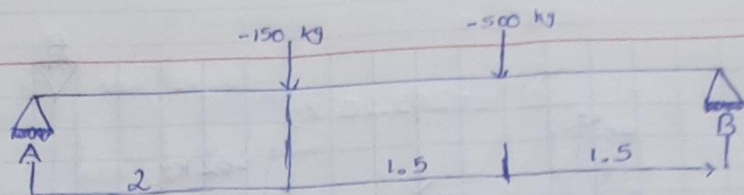 -150 kg
-500 kg
A
B
2
1.5
1.5